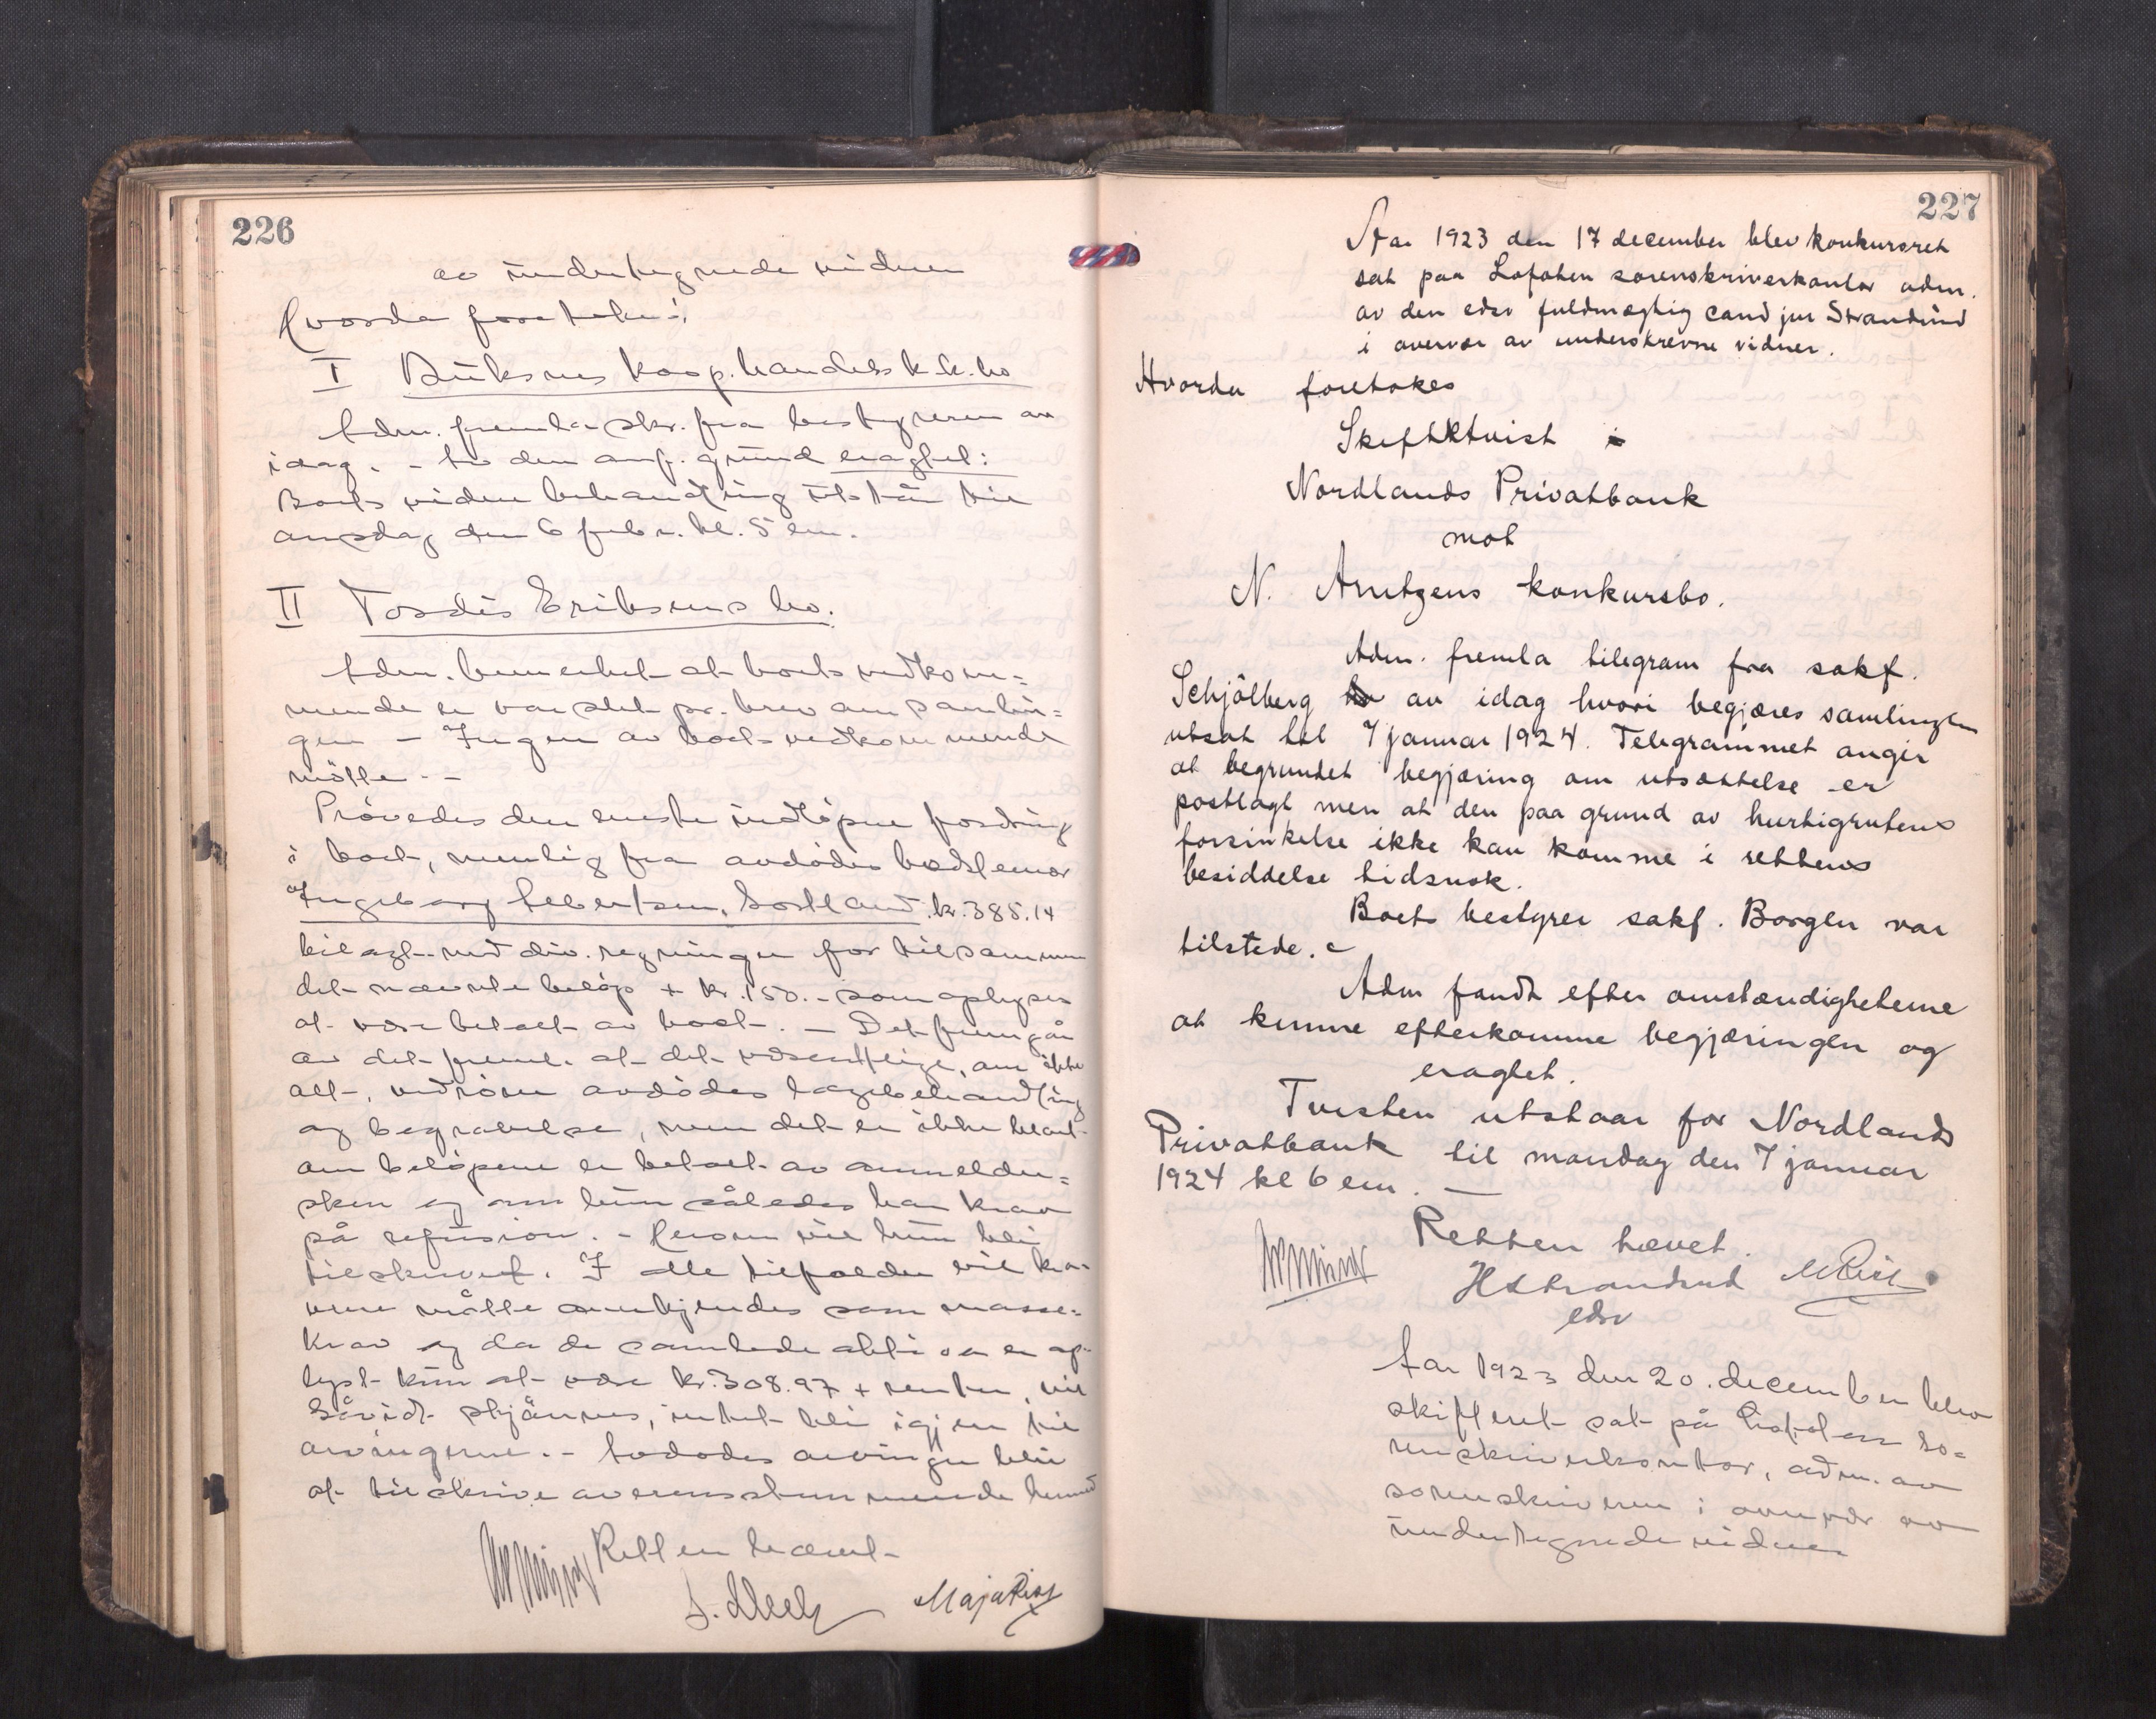 226
av undertegnede vidner
Hvorda foretokes:
I Buksnes koop. handelsl. k.k.bo
Adm. fremla skr. fra bestyreren av
idag. - Av den anf. grund eragtet:
Boets videre behandling utstår til
onsdag den 6 febr. kl. 5 em.
II Tordis Eriksens bo.
Adm. bemerket at boets vedkom=
mende er varslet pr. brev om samlin=
gen - Ingen av boets vedkommende
møtte. -
Prövedes den eneste indløpne fordring
i boet, nemlig fra avdødes
Ingeborg Albertsen, Sortland kr. 385.14
bilagt med div. regninger for tilsammen
det nævnte beløp + kr. 150.- som oplyses
at være betalt av boet. - Det fremgår
av det freml. at det væsentlige, om ikke
alt, vedrører avdödes lægebehandling
og begravelse, men det er ikke klart
om beløpene er betalt av anmelder=
sken og om hun således har krav
på refusion. - Herom vil hun bli
tilskrevet. I alle tilfælder vil kra-
vene måtte anerkjendes som masse=
krav og da de samlede aktiva er op-
lyst kun at være kr. 308.97 + renter, vil
såvidt skjønnes, intet bli igjen til
arvingerne. - Avdødes arvinger blir
at tilskrive overensstemmende hermed
Retten hævet
Maja Riis
227
Aar 1923 den 17 december blev konkursret
sat paa Lofoten sorenskriverkontor adm.
av den edsv fuldmægtig cand jur Strandrud
i overvær av underskrevne vidner.
Hvorda foretokes
Skiftetvist
Nordlands Privatbank
mot
N. Arntzens konkursbo.
Adm. fremla telegram fra sakf.
Schjölberg av idag hvori begjæres samlingen
utsat til 7 januar 1924. Telegrammet angir
at begrundet begjæring om utsættelse er
postlagt men at den paa grund av hurtigrutens
forsinkelse ikke kan komme i rettens
besiddelse tidsnok.
Boets bestyrer sakf. Borgen var
tilstede.
Adm fandt efter omstændigheterne
at kunne efterkomme begjæringen og
eragtet.
Tvisten utstaar for Nordlands
Privatbank til mandag den 7 januar
1924 kl 6 em. -
Retten hævet.
HStrandrud MRiis
edsv
Aar 1923 den 20. december blev
skifteret sat på Lofoten so=
renskriverkontor, adm. av
sorenskriveren i overvær av
undertegnede vidner